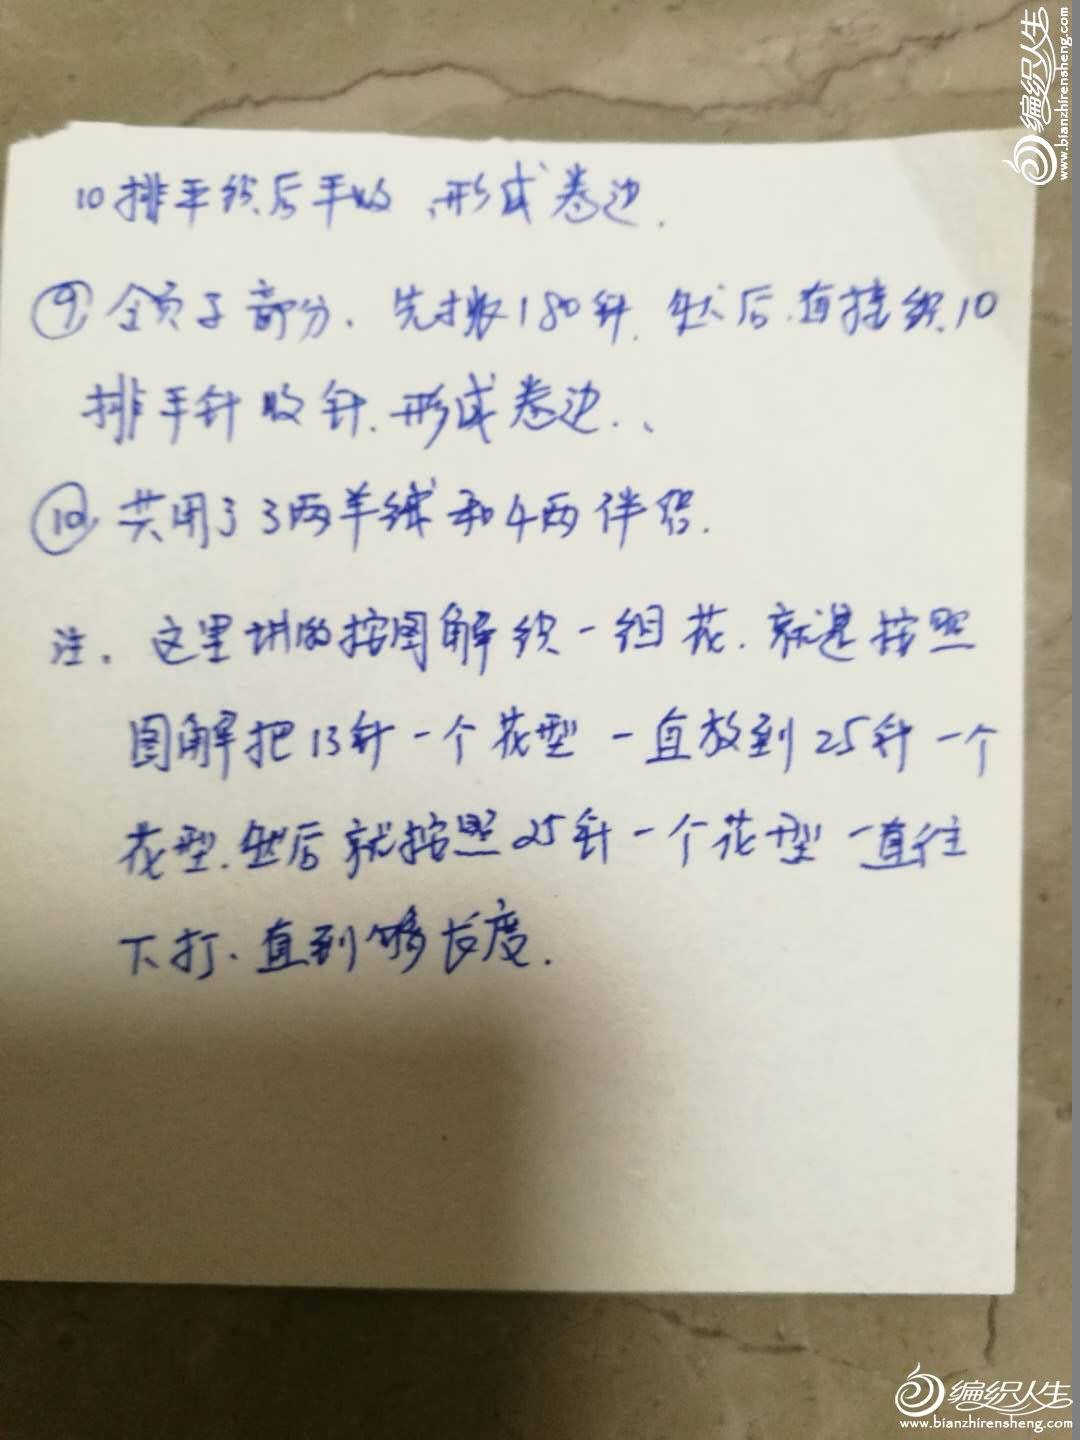 10排平织后平收、形成卷边.
⑨ 领子部分. 先挑180针. 然后.直接织.10
排平针收针.形成卷边..、
⑩ 共用了3两羊绒和4两伴侣.
注. 这里讲的按图解织一组花.就是按照
图解把13针一个花型一直放到25针一个
花型.然后就按照25针一个花型一直往
下打.直到够长度.
编织人生
www.bianzhirensheng.com
编织人生
www.bianzhirensheng.com